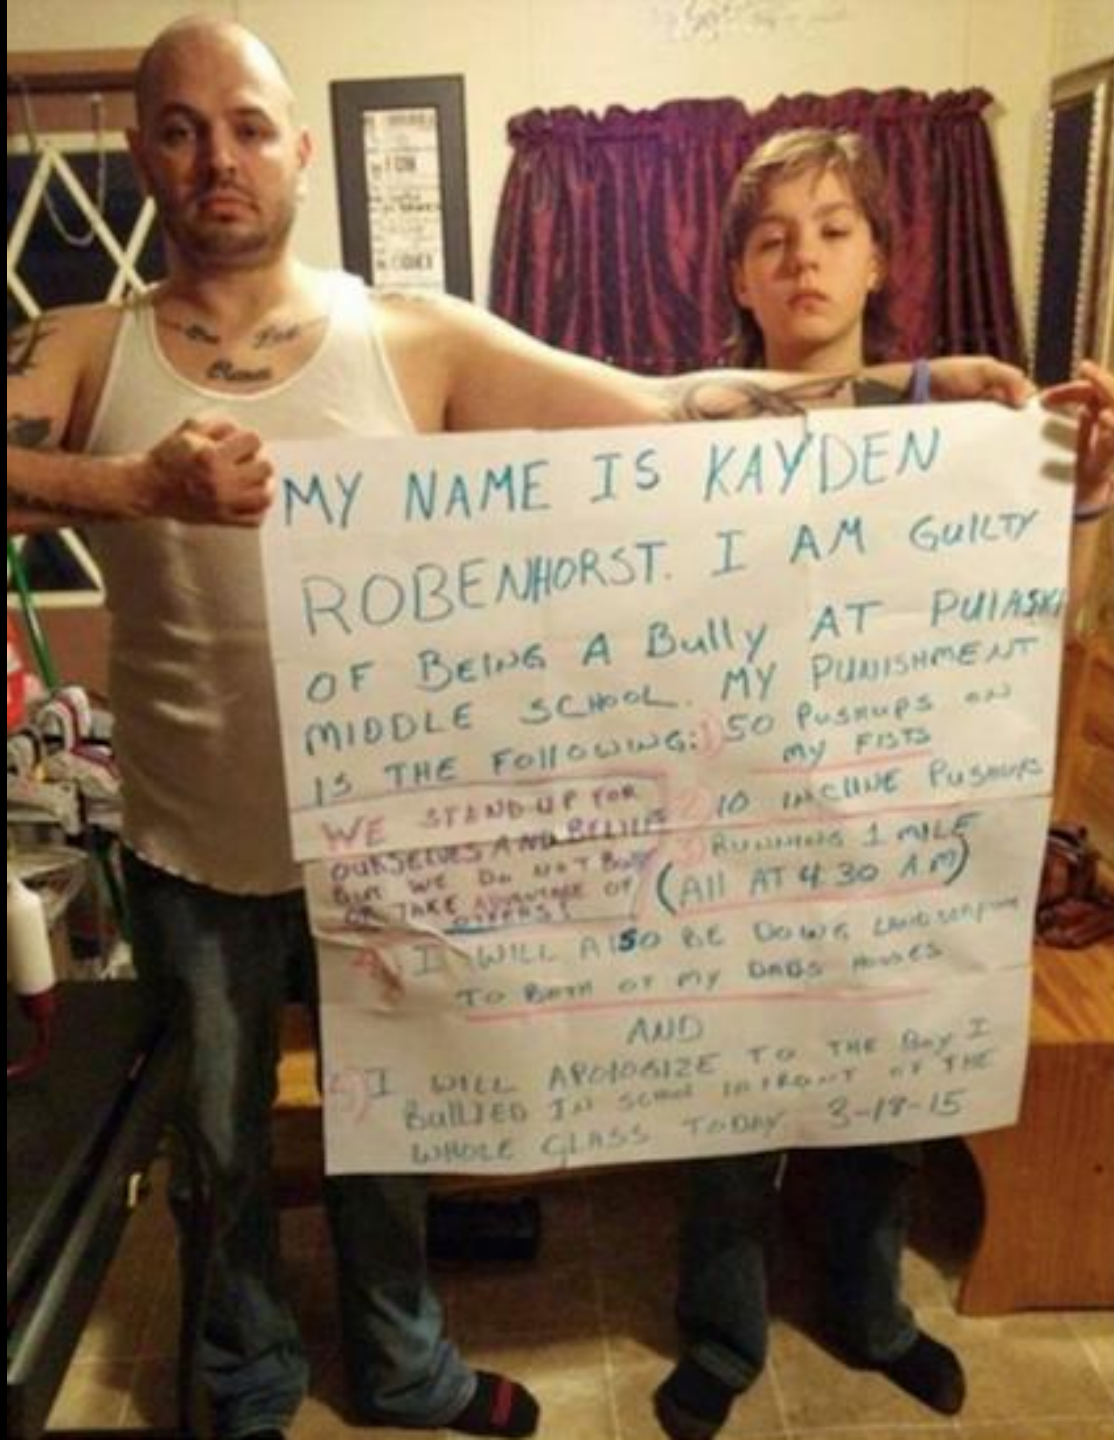 MY NAME IS KAYDEN
ROBENHORST. I AM GUILTY
OF BEING A Bully AT PUlASKI
MIDDLE SCHOOL. MY PUNISHMENT
IS THE FOllOWING: 1) 50 PUSHUPS ON
MY FISTS
2) 10 INCLINE PUSHUPS
3) RUNNING 1 MILE
(All AT 4:30 AM)
WE STAND UP FOR
OURSELVES AND BELIEFS
BUT WE DO NOT BULLY
OR TAKE ADVANTAGE OF
OTHERS!
4) I WILL AlSO BE DOING LANDSCAPING
TO BOTH OF MY DADS HOUSES
AND
5) I WILL APOlOGIZE TO THE BOY I
BUllIED IN SCHOOL INFRONT OF THE
WHOLE CLASS TODAY. 3-18-15